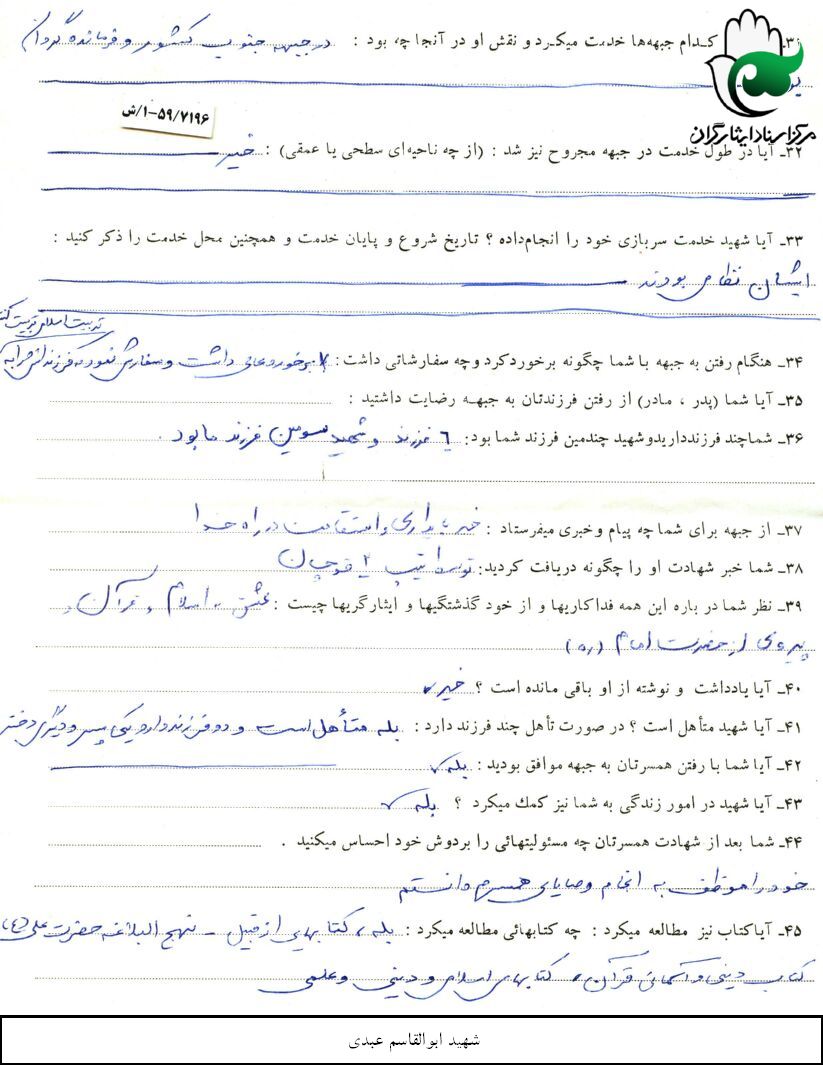 ۳۱ـ کدام جبهه‌ها خدمت میکرد و نقش او در آنجا چه بود : در جبهه جنوب کشور و فرمانده گردان
بود
مرکز اسناد ایثارگران
۱-۵۹/۷۱۹۶/ش
۳۲ـ آیا در طول خدمت در جبهه مجروح نیز شد : (از چه ناحیه‌ای سطحی یا عمقی) : خیر
۳۳ـ آیا شهید خدمت سربازی خود را انجام‌داده ؟ تاریخ شروع و پایان خدمت و همچنین محل خدمت را ذکر کنید :
ایشان نظامی بودند
۳۴ـ هنگام رفتن به جبهه با شما چگونه برخورد کرد و چه سفارشاتی داشت : برخورد عالی داشت و سفارش نمود که فرزندانش را به
تربیت اسلامی تربیت کند
۳۵ـ آیا شما (پدر ، مادر) از رفتن فرزندتان به جبهه رضایت داشتید :
۳۶ـ شما چند فرزند دارید و شهید چندمین فرزند شما بود: ۶ فرزند و شهید سومین فرزند ما بود .
۳۷ـ از جبهه برای شما چه پیام و خبری میفرستاد : خبر پایداری و استقامت در راه خدا
۳۸ـ شما خبر شهادت او را چگونه دریافت کردید: توسط تیپ ۲ قوچان
۳۹ـ نظر شما در باره این همه فداکاریها و از خود گذشتگیها و ایثارگریها چیست : عشق به اسلام و قرآن و
پیروی از حضرت امام (ره)
۴۰ـ آیا یادداشت و نوشته از او باقی مانده است ؟ خیر
۴۱ـ آیا شهید متأهل است ؟ در صورت تأهل چند فرزند دارد : بله متأهل است و دو فرزند دارد یکی پسر و دیگری دختر
۴۲ـ آیا شما با رفتن همسرتان به جبهه موافق بودید : بله
۴۳ـ آیا شهید در امور زندگی به شما نیز کمك میکرد ؟ بله
۴۴ـ شما بعد از شهادت همسرتان چه مسئولیتهائی را بردوش خود احساس میکنید .
خود را موظف به انجام وصایای همسرم دانستم
۴۵ـ آیا کتاب نیز مطالعه میکرد : چه کتابهائی مطالعه میکرد : بله ، کتابهایی از قبیل – نهج البلاغه حضرت علی (ع)
کتاب دینی و آسمانی قرآن ، کتابهای اسلامی و دینی و علمی
شهید ابوالقاسم عبدی